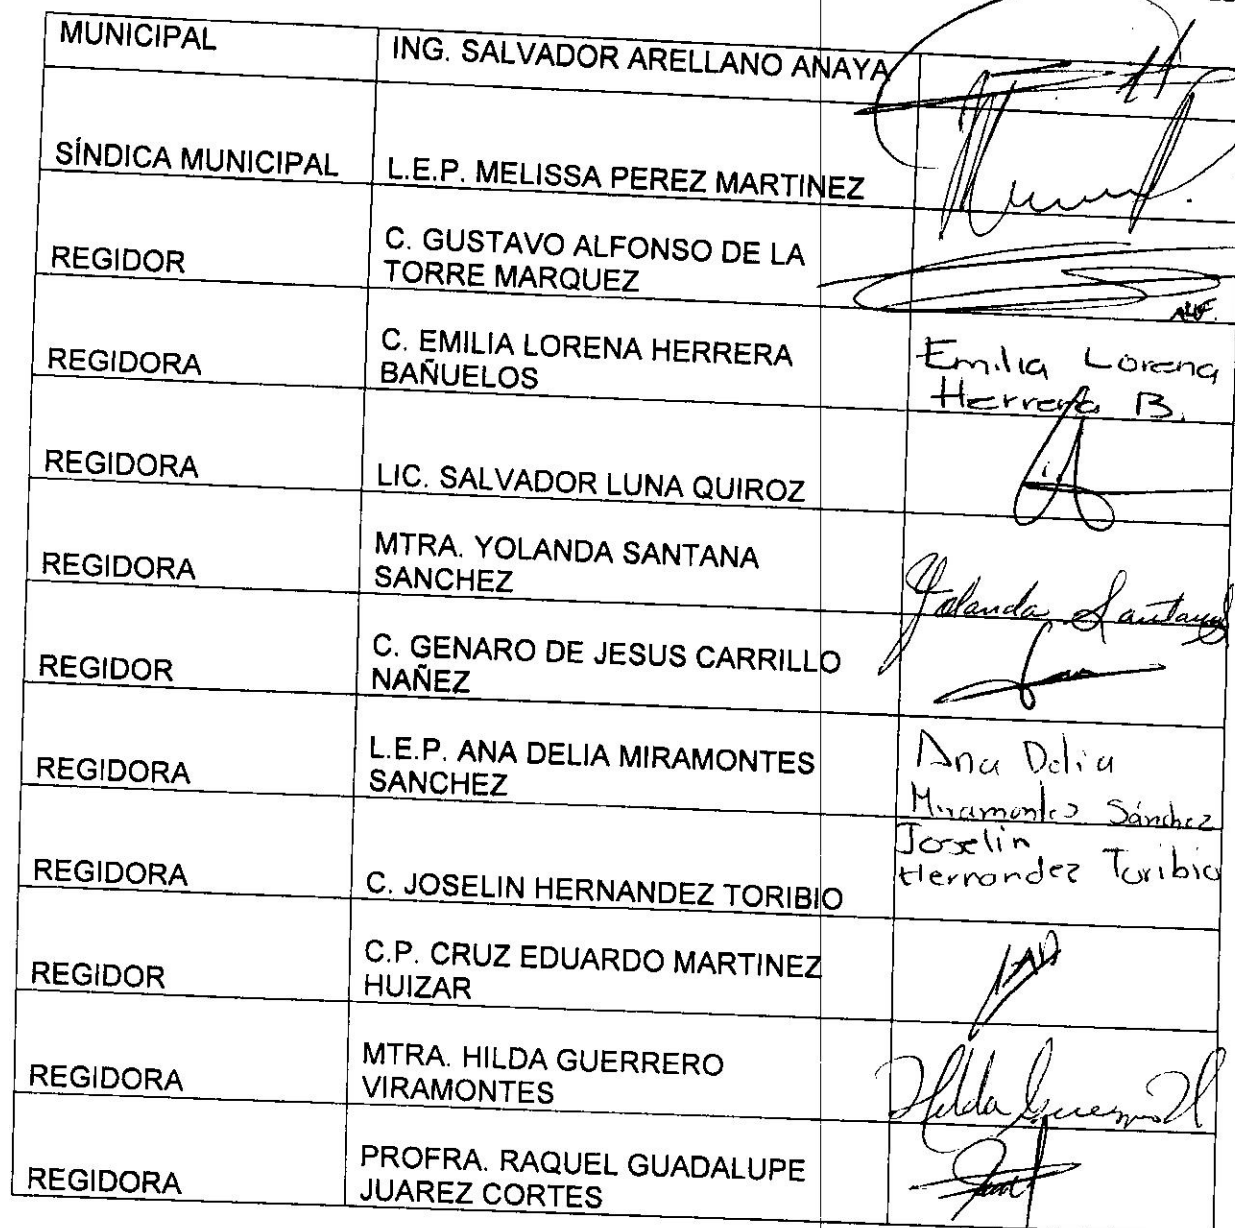 MUNICIPAL
ING. SALVADOR ARELLANO ANAYA
SÍNDICA MUNICIPAL
L.E.P. MELISSA PEREZ MARTINEZ
REGIDOR
C. GUSTAVO ALFONSO DE LA
TORRE MARQUEZ
REGIDORA
C. EMILIA LORENA HERRERA
BAÑUELOS
Emilia Lorena
Herrera B.
REGIDORA
LIC. SALVADOR LUNA QUIROZ
REGIDORA
MTRA. YOLANDA SANTANA
SANCHEZ
Yolanda Santana
REGIDOR
C. GENARO DE JESUS CARRILLO
NAÑEZ
REGIDORA
L.E.P. ANA DELIA MIRAMONTES
SANCHEZ
Ana Delia
Miramontes Sánchez
REGIDORA
C. JOSELIN HERNANDEZ TORIBIO
Joselin
Hernandez Toribio
REGIDOR
C.P. CRUZ EDUARDO MARTINEZ
HUIZAR
REGIDORA
MTRA. HILDA GUERRERO
VIRAMONTES
Hilda Guerrero V
REGIDORA
PROFRA. RAQUEL GUADALUPE
JUAREZ CORTES